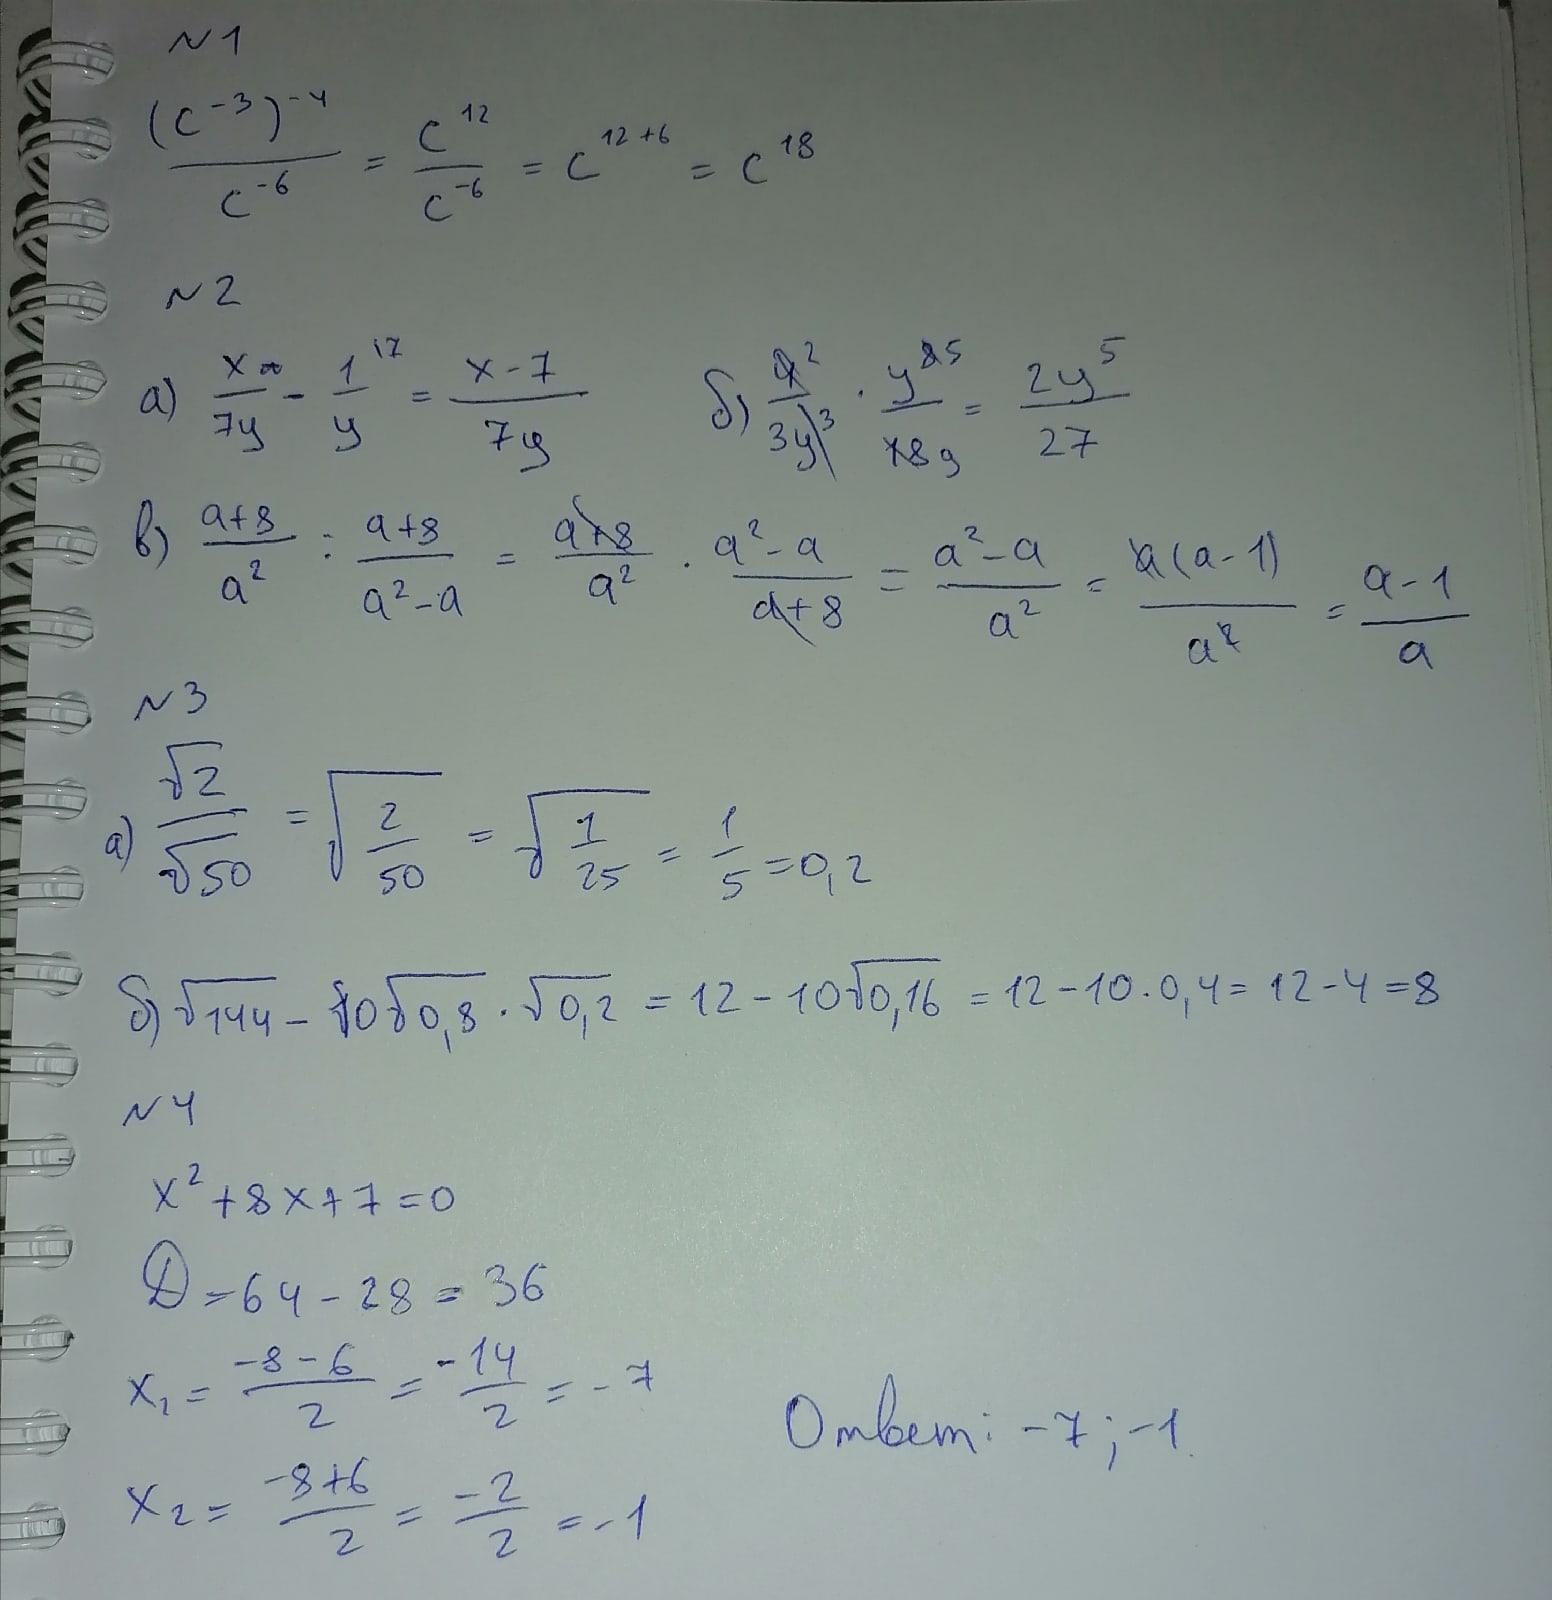 №1
(c^-3)^-4 / c^-6 = c^12 / c^-6 = c^12+6 = c^18
№2
а) x / 7y - 1^17 / y = x-7 / 7y б) 2 / 3y^3 · y^85 / 89 = 2y^5 / 27
в) a+8 / a^2 : a+8 / a^2-a = a+8 / a^2 · a^2-a / a+8 = a^2-a / a^2 = a(a-1) / a^2 = a-1 / a
№3
а) √2 / √50 = √(2/50) = √(1/25) = 1/5 = 0,2
б) √144 - 10√0,8 · √0,2 = 12 - 10√0,16 = 12 - 10·0,4 = 12-4 = 8
№4
x^2+8x+7=0
D=64-28=36
x1 = -8-6 / 2 = -14 / 2 = -7
Ответ: -7; -1.
x2 = -8+6 / 2 = -2 / 2 = -1